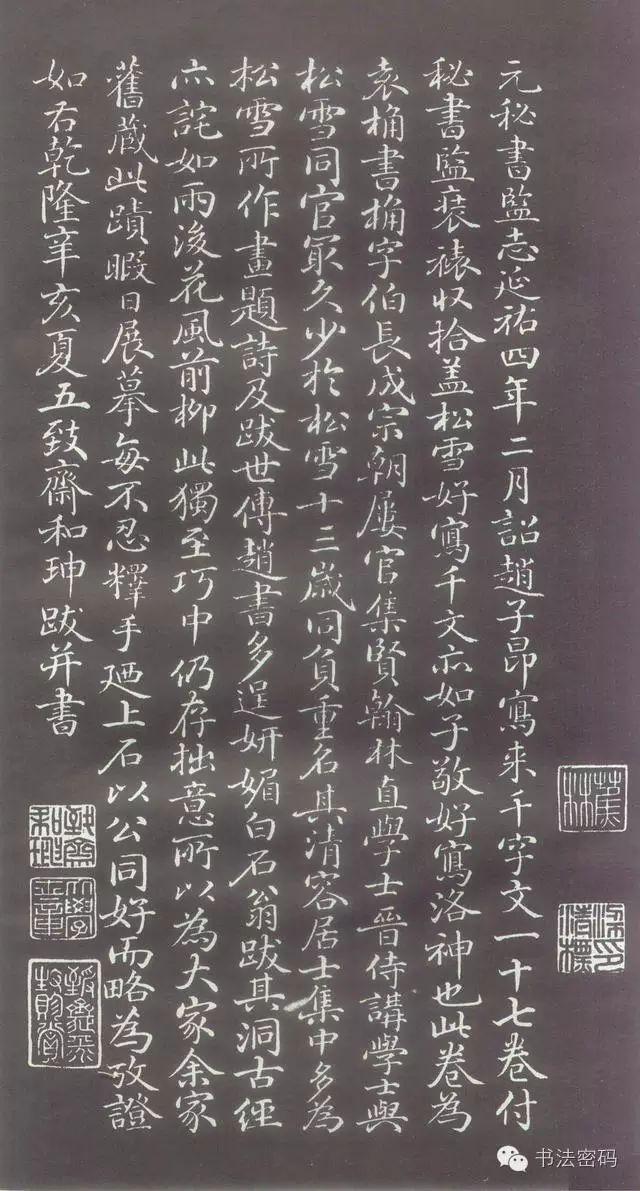 元秘書監志延祐四年二月詔趙子昂寫来千字文一十七卷付
秘書監裝裱収拾盖松雪好寫千文亦如子敬好寫洛神也此卷為
袁桷書桷字伯長成宗朝屢官集賢翰林直學士晉侍講學士與
松雪同官㝡久少於松雪十三歲同負重名其清容居士集中多為
松雪所作畫題詩及跋世傳趙書多逞妍媚白石翁跋其洞古經
亦詫如雨後花風前柳此獨至巧中仍存拙意所以為大家余家
舊蔵此蹟暇日展摹每不忍釋手廼上石以公同好而略為攷證
如右乾隆辛亥夏五致齋和珅跋并書
蕉林
书法密码